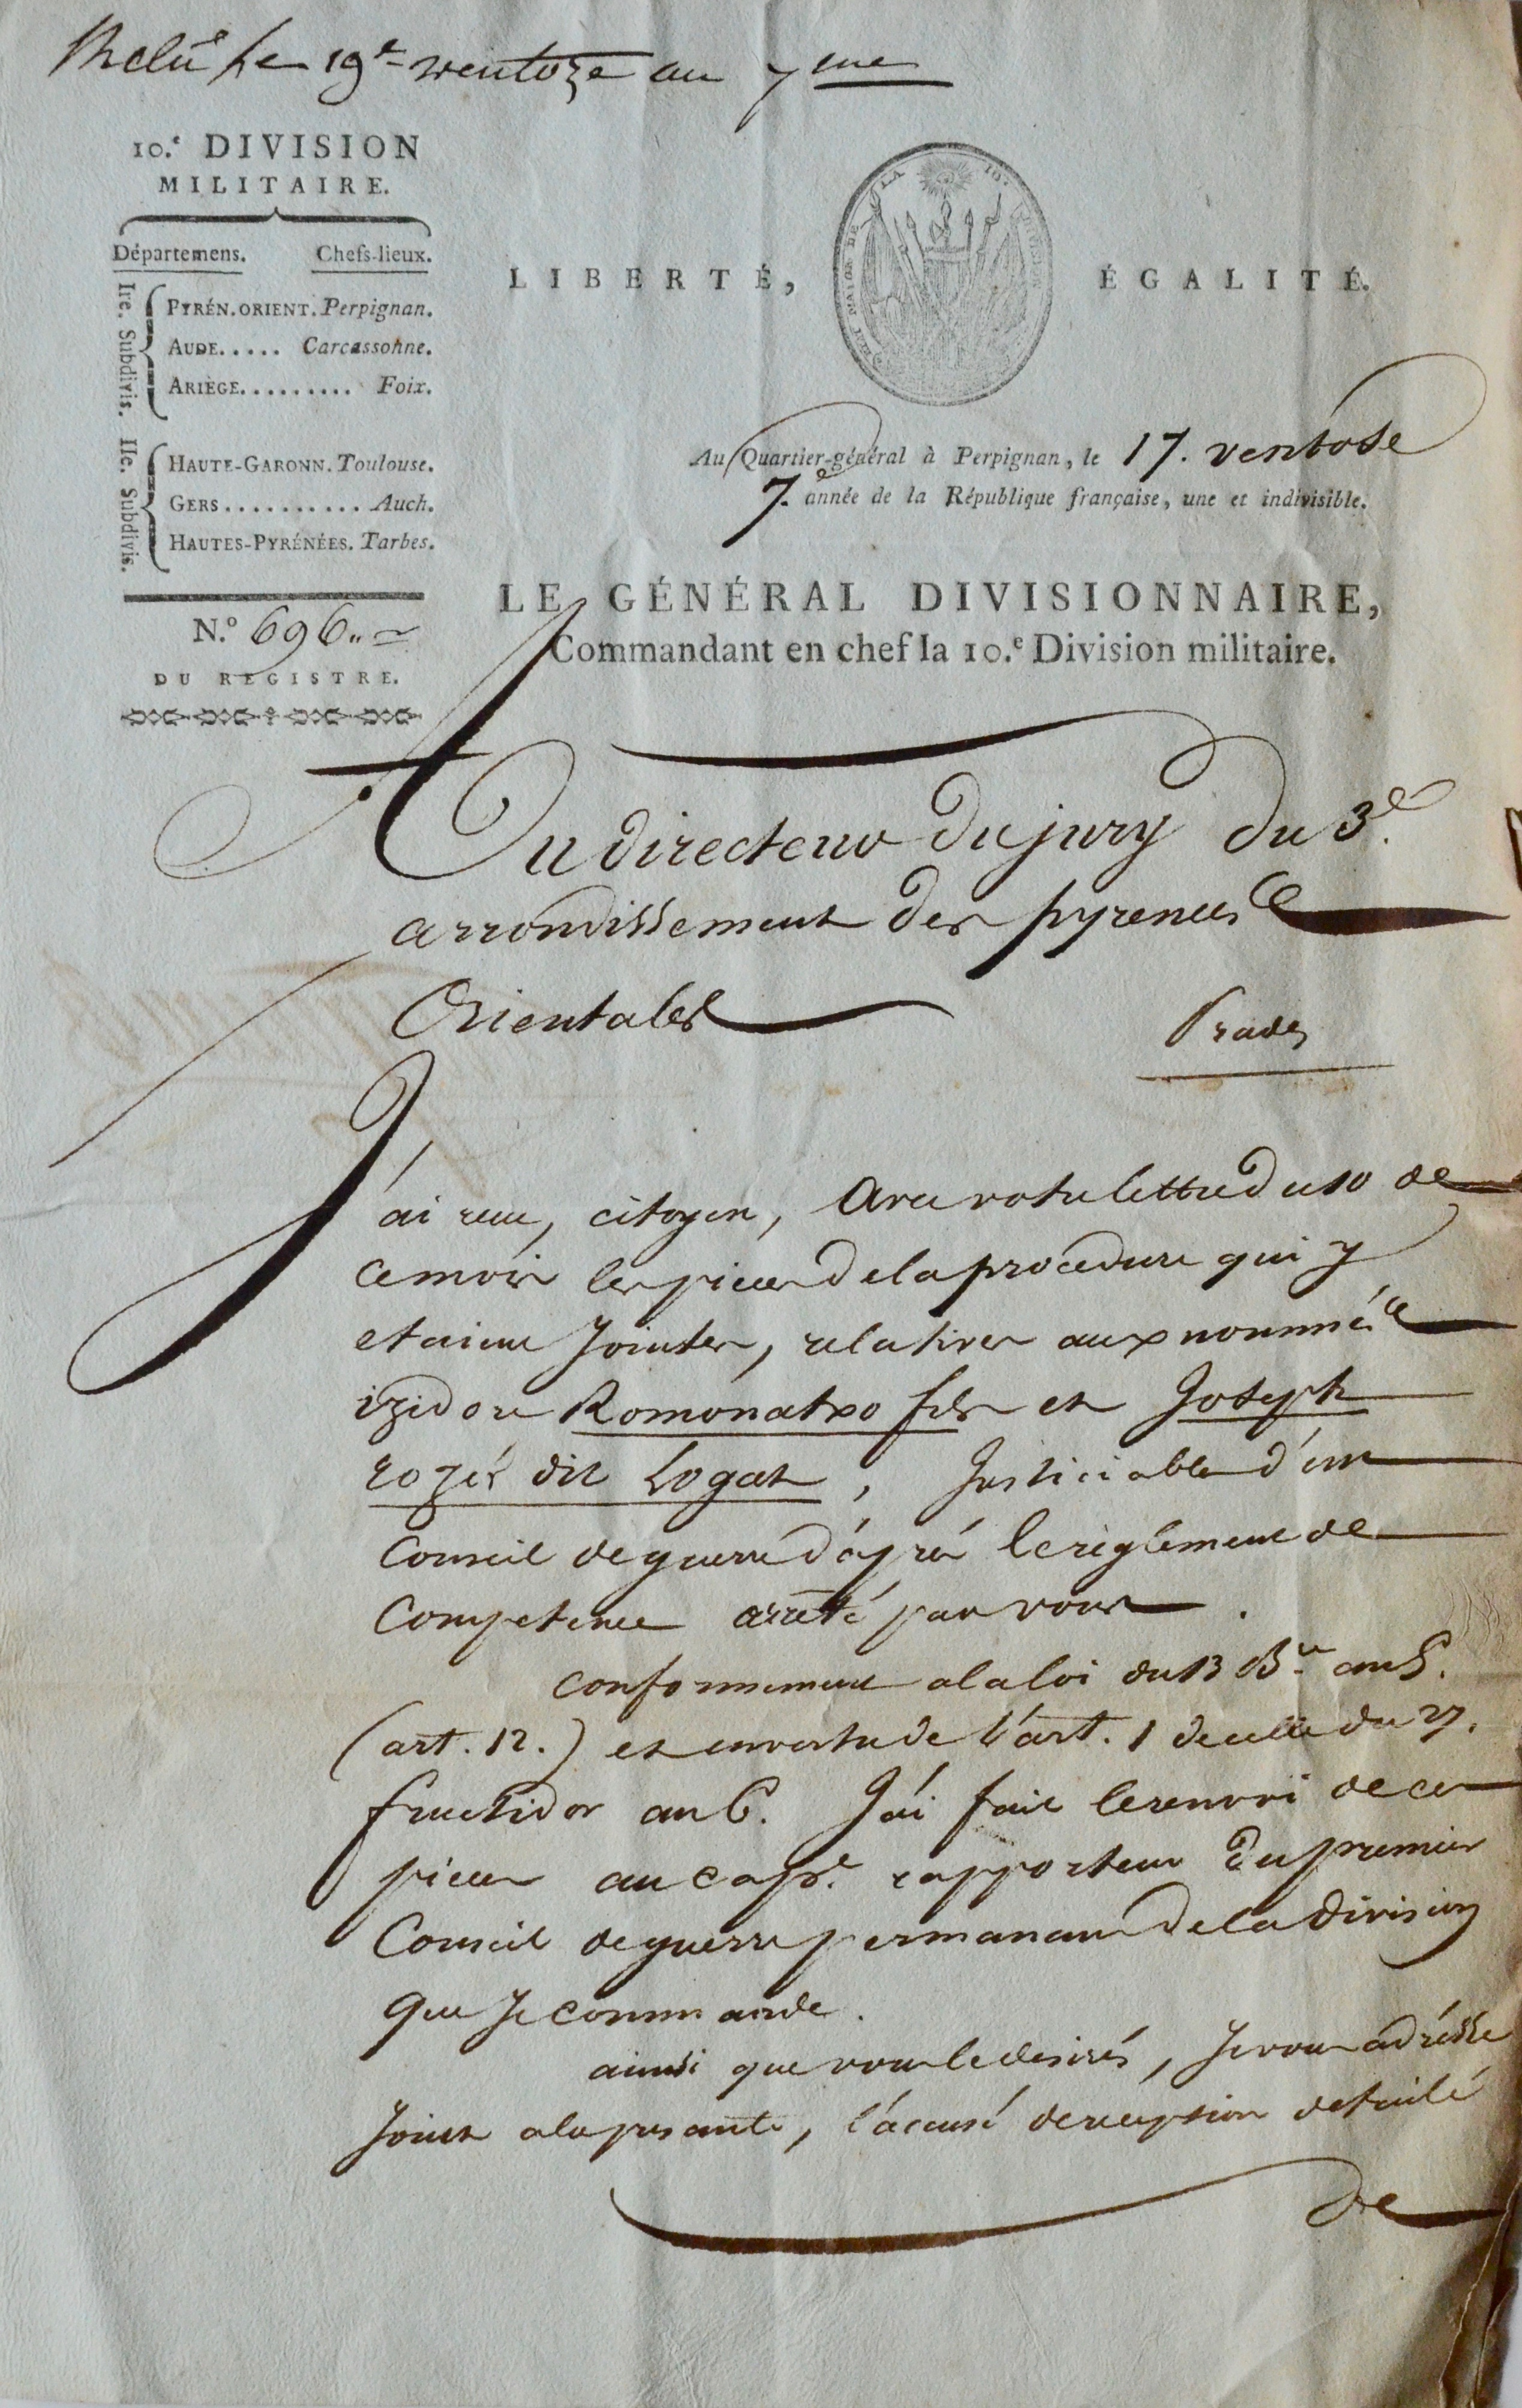 Recu le 19e ventoze an 7eme
10.e DIVISION
MILITAIRE.
Départemens. Chefs-lieux.
Ire. Subdivis.
PYRÉN. ORIENT. Perpignan.
AUDE..... Carcassonne.
ARIÈGE......... Foix.
IIe. Subdivis.
HAUTE-GARONN. Toulouse.
GERS.......... Auch.
HAUTES-PYRÉNÉES. Tarbes.
N.o 696
DU REGISTRE.
LIBERTÉ, ÉGALITÉ.
ETAT MAJOR DE LA 10e DIVISION
Au Quartier-général à Perpignan, le 17. ventose
7.e année de la République française, une et indivisible.
LE GÉNÉRAL DIVISIONNAIRE,
Commandant en chef la 10.e Division militaire.
Au directeur du jury du 3e.
arrondissement des pyrenees
Orientales
Prades
J'ai recu, citoyen, avec votre lettre du 10 de
ce mois les pieces de la procedure qui y
etaient jointes, relatives aux nommés
izidore Romonatxo fils et Joseph
rozés dit Logat, Justiciables d'un
Conseil de guerre d'aprés le réglement de
Competence arrêté par vous.
conformement a la loi du 13 Bre. an 5.
(art. 12.) et en vertu de l'art. 1 de celle du 27.
fructidor an 6. J'ai fait le renvoi de ces
pieces au cape. rapporteur du premier
Conseil de guerre permanant de la division
que Je commande.
ainsi que vous le desirés, Je vous adrésse
Joint a la presante, l'accusé de reception detaillé
de